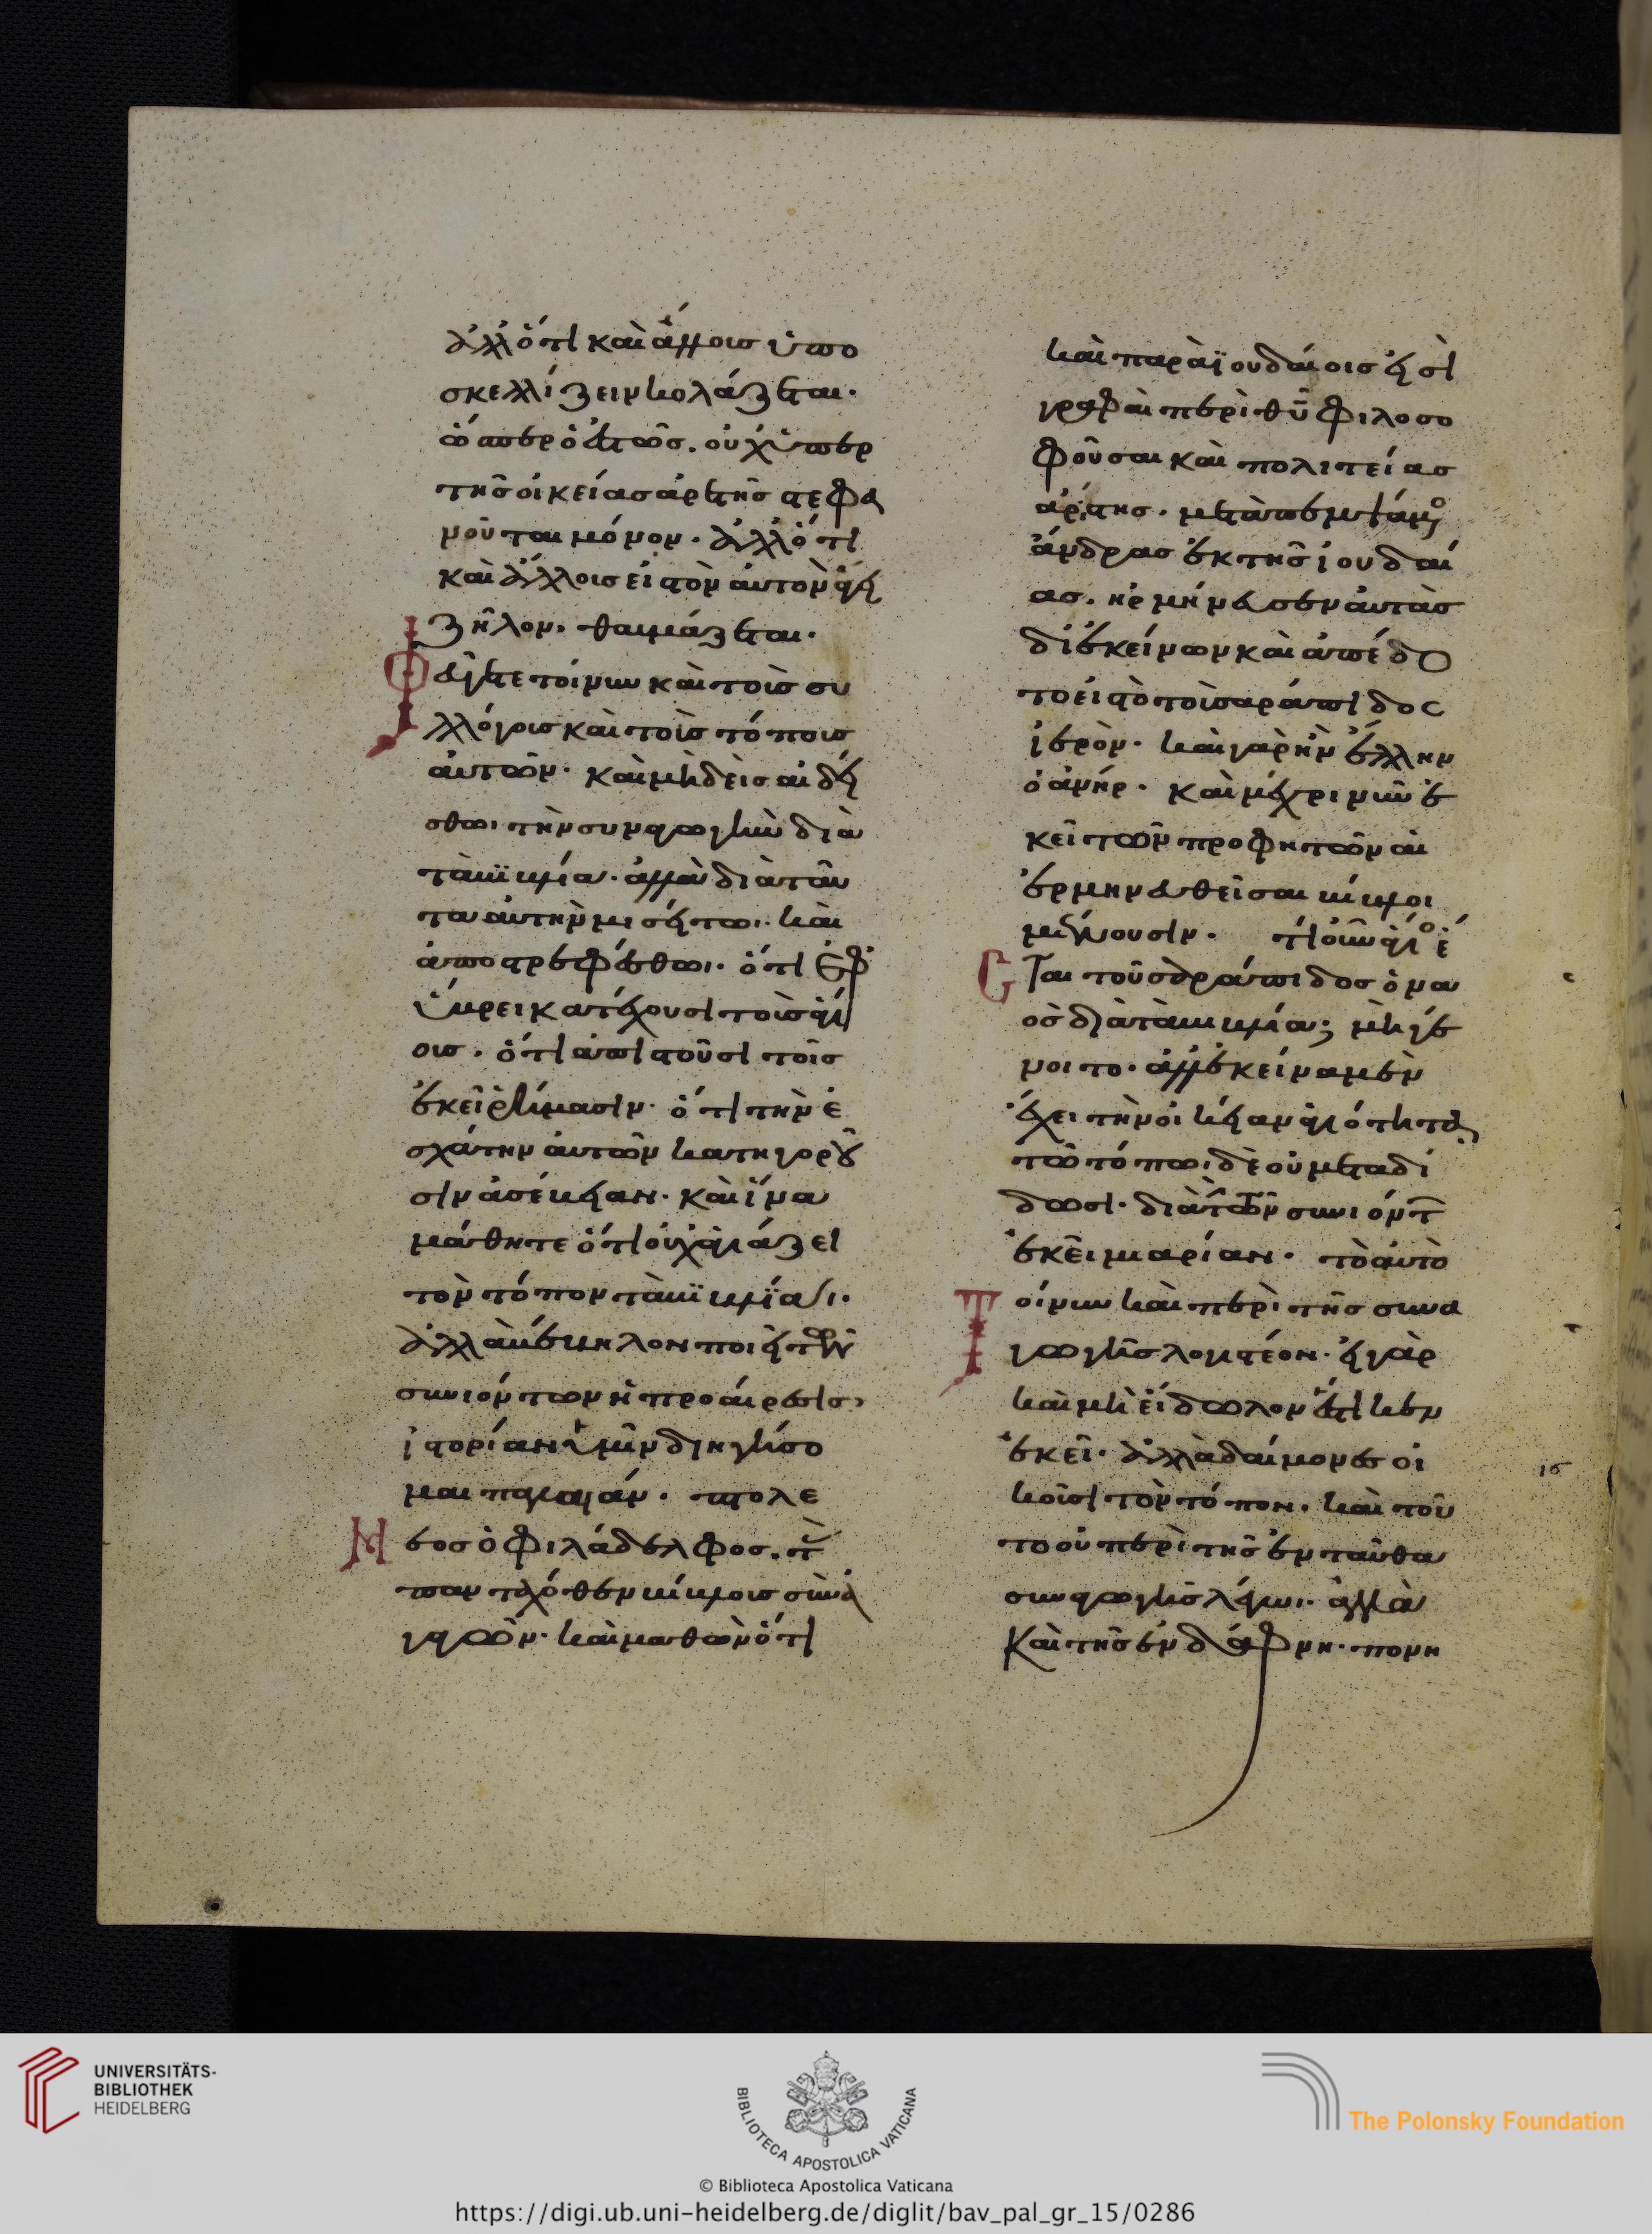 ἀλλ' ὅτι καὶ ἄλλοις ὑπο
σκελλίζειν κολάζεται·
ὥσπερ ὁ ἑστῶς. οὐχ ὑπὲρ
τῆς οἰκείας ἀρετῆς στεφα
νοῦται μόνον. ἀλλ' ὅτι
καὶ ἄλλοις εἰς τὸν αὐτὸν ἄγει
ζῆλον, θαυμάζεται.
Φεύγετε τοίνυν καὶ τοὺς συ
λλόγους καὶ τοὺς τόπους
αὐτῶν· καὶ μηδεὶς αἰδεί
σθω τὴν συναγωγὴν διὰ
τὰ βϊβλία· ἀλλὰ διὰ ταῦ
τα αὐτὴν μισείτω· καὶ
ἀποστρεφέσθω· ὅτι ἐφ'
ὕβρει κατέχουσι τοὺς ἁγί
ους· ὅτι ἀπιστοῦσι τοῖς
ἐκεῖ ῥήμασιν· ὅτι τὴν ἐ
σχάτην αὐτῶν κατηγοροῦ
σιν ἀσέβειαν· καὶ ἵνα
μάθητε ὅτι οὐχ ἁγιάζει
τὸν τόπον τὰ βϊβλΐα·
ἀλλὰ βέβηλον ποιεῖ τῶν
συνιόντων ἡ προαίρεσις,
ἱστορίαν ὑμῖν διηγήσο
μαι παλαιάν. πτολε
Μεος ὁ φιλάδελφος. τὰς
πανταχόθεν βίβλους συνα
γαγὼν· καὶ μαθὼν ὅτι
καὶ παρὰ ϊουδαίοις εἰσὶ
γραφαὶ περὶ θῦ φιλοσο
φοῦσαι καὶ πολιτείας
ἀρίστης. μεταπεμψάμενος
ἄνδρας ἐκ τῆς ἰουδαί
ας. ἡρμήνευσεν αὐτὰς
δι' ἐκείνων καὶ ἀπέδο
το εἰς τὸ τοῦ σαράπιδος
ἱερὸν· καὶ γὰρ ἦν ἕλλην
ὁ ἀνήρ. καὶ μέχρι νῦν ἐ
κεῖ τῶν προφητῶν αἱ
ἑρμηνευθεῖσαι βίβλοι
μένουσιν. τί οὖν ἅγιος ἔ
Σται τοῦ σεράπιδος ὁ να
ὸς διὰ τὰ βιβλία; μὴ γέ
νοιτο· ἀλλ' ἐκεῖνα μὲν
ἔχει τὴν οἰκείαν ἁγιότητα,
τῶ τόπω δὲ οὐ μεταδί
δωσι· διὰ τὴν τῶν συνιόντ
ἐκεῖ μιαρίαν. τὸ αὐτὸ
Τοίνυν καὶ περὶ τῆς συνα
γωγῆς λογιστέον. εἰ γὰρ
καὶ μὴ εἴδωλον ἕστηκεν
ἐκεῖ· ἀλλὰ δαίμονες οἰ
κοῦσι τὸν τόπον. καὶ τοῦ
το οὐ περὶ τῆς ἐνταῦθα
συναγωγῆς λέγω. ἀλλὰ
Καὶ τῆς ἐν δάφνη. πονη
16
UNIVERSITÄTS-
BIBLIOTHEK
HEIDELBERG
BIBLIOTECA APOSTOLICA VATICANA
The Polonsky Foundation
© Biblioteca Apostolica Vaticana
https://digi.ub.uni-heidelberg.de/diglit/bav_pal_gr_15/0286